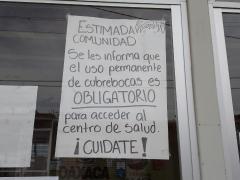 ESTIMADA
COMUNIDAD
Se les informa que
el uso permanente
de cubrebocas es
OBLIGATORIO
para acceder al
centro de salud.
¡CUIDATE!
OAXACA